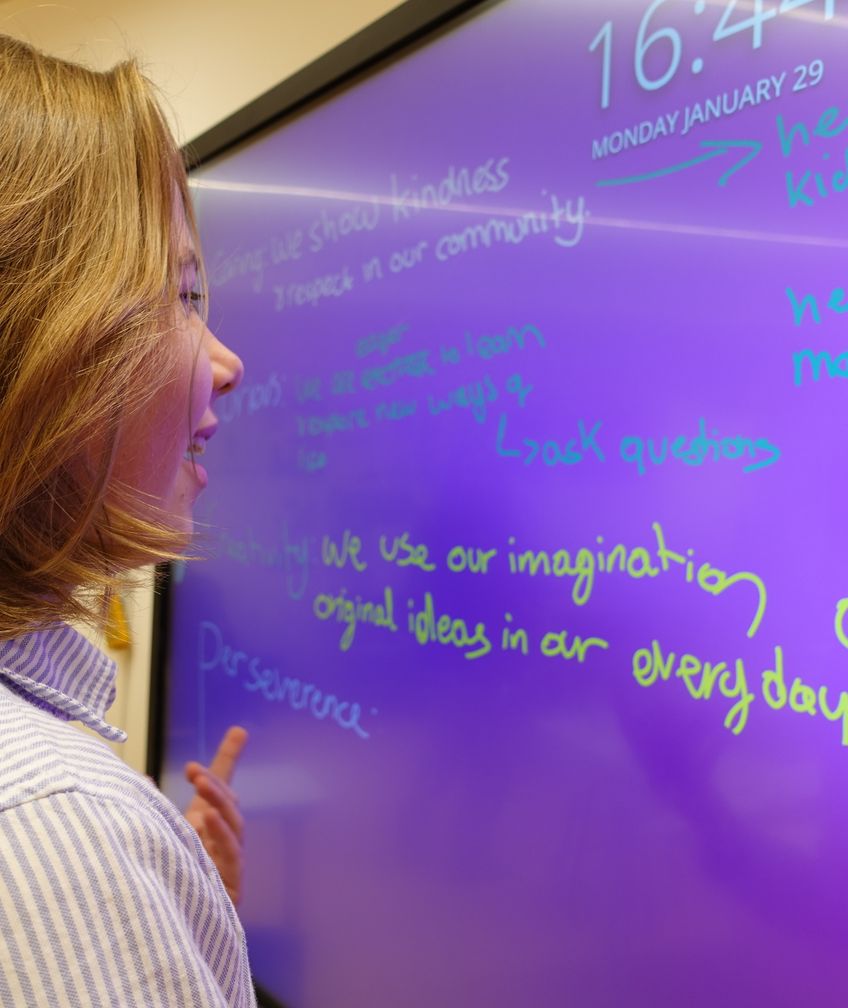 16:44
MONDAY JANUARY 29
he
kid
Caring: we show kindness
respect in our community.
he
mo
eager
we are to learn
explore new ways of
↳ ask questions
Creativity: we use our imagination
original ideas in our everyday
Perseverence: